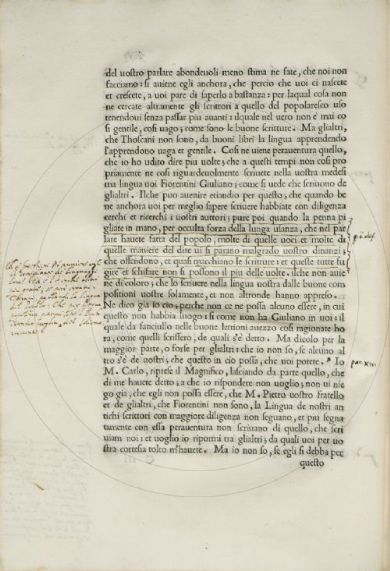 del uostro parlare abondeuoli meno stima ne fate, che noi non
facciamo: si auiene egli anchora, che percio che uoi ci nascete
et crescete, a uoi pare di saperlo a bastanza: per laqual cosa non
ne cercate altramente gli scrittori a quello del popolaresco uso
tenendoui senza passar piu auanti: ilquale nel uero non è mai co
si gentile, cosi uago; come sono le buone scritture. Ma glialtri,
che Thoscani non sono, da buoni libri la lingua apprendendo
l'apprendono uaga et gentile. Cosi ne uiene perauentura quello,
che io ho udito dire piu uolte; che a questi tempi non cosi pro
priamente ne cosi riguardeuolmente scriuete nella uostra medesi
ma lingua uoi Fiorentini Giuliano; come si uede che scriuono de
glialtri. Ilche puo auenire etiandio per questo; che quando be
ne anchora uoi per meglio sapere scriuere habbiate con diligenza
cerchi et ricerchi i uostri auttori; pure poi quando la penna pi
gliate in mano, per occulta forza della lunga usanza, che nel par
lare hauete fatta del popolo, molte di quelle uoci et molte di
quelle maniere del dire ui si parano malgrado uostro dinanzi;
che offendono, et quasi macchiano le scritture: et queste tutte fu
gire et schifare non si possono il piu delle uolte. ilche non auie
ne di coloro; che lo scriuere nella lingua uostra dalle buone com
positioni uostre solamente, et non altronde hanno appreso.
Ne dico gia io cio; perche non ce ne possa alcuno essere, in cui
questo non habbia luogo: si come non ha Giuliano in uoi: il
quale da fanciullo nelle buone lettioni auezzo cosi ragionate ho
ra, come quelli scrissero, de quali s'è detto. Ma dicolo per la
maggior parte, o forse per glialtri: che io non so, se alcuno al
tro s'è de uostri; che questo in cio possa, che uoi potete. Io
M. Carlo, riprese il Magnifico, lasciando da parte quello, che
di me hauete detto; a che io rispondere non uoglio; non ui nie
go gia, che egli non possa essere, che M. Pietro uostro fratello
et de glialtri, che Fiorentini non sono, la Lingua de nostri an
tichi scrittori con maggiore diligenza non seguano, et piu segna
tamente con essa perauentura non scriuano di quello, che scri
uiam noi: et uoglio io ripormi tra glialtri; da quali uoi per uo
stra cortesia tolto m'hauete. Ma io non so, se egli si debba per
questo